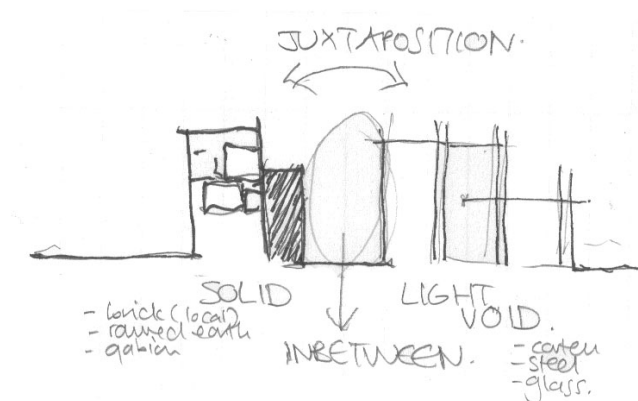 JUXTAPOSITION.
SOLID
- brick (local)
- rammed earth
- gabion
INBETWEEN.
LIGHT
VOID.
- corten
- steel
- glass.